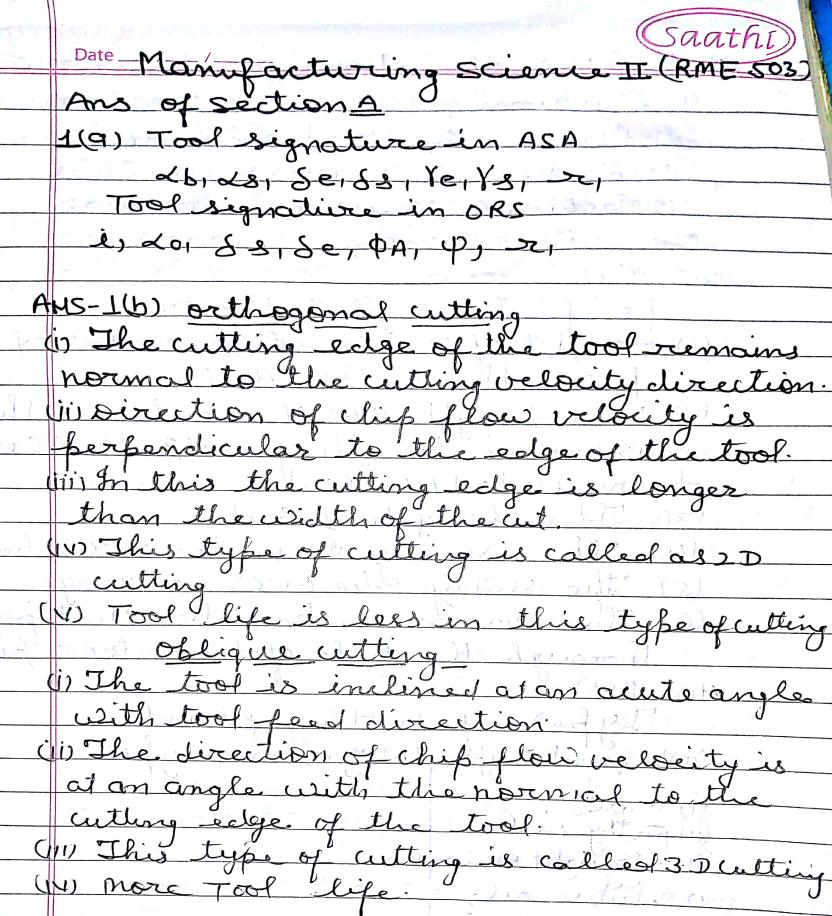 Saathi
Date
Manufacturing science II (RME 503)
Ans of section A
1(a) Tool signature in ASA
αb, αs, δe, δs, γe, γs, r,
Tool signature in ORS
i, αo, δs, δe, φA, ψ, r,
ANS-1(b) orthogonal cutting
(i) The cutting edge of the tool remains
normal to the cutting velocity direction.
(ii) Direction of chip flow velocity is
perpendicular to the edge of the tool.
(iii) In this the cutting edge is longer
than the width of the cut.
(iv) This type of cutting is called as 2D
cutting
(v) Tool life is less in this type of cutting
oblique cutting
(i) The tool is inclined at an acute angle
with tool feed direction
(ii) The direction of chip flow velocity is
at an angle with the normal to the
cutting edge of the tool.
(iii) This type of cutting is called 3D cutting
(iv) more Tool life.